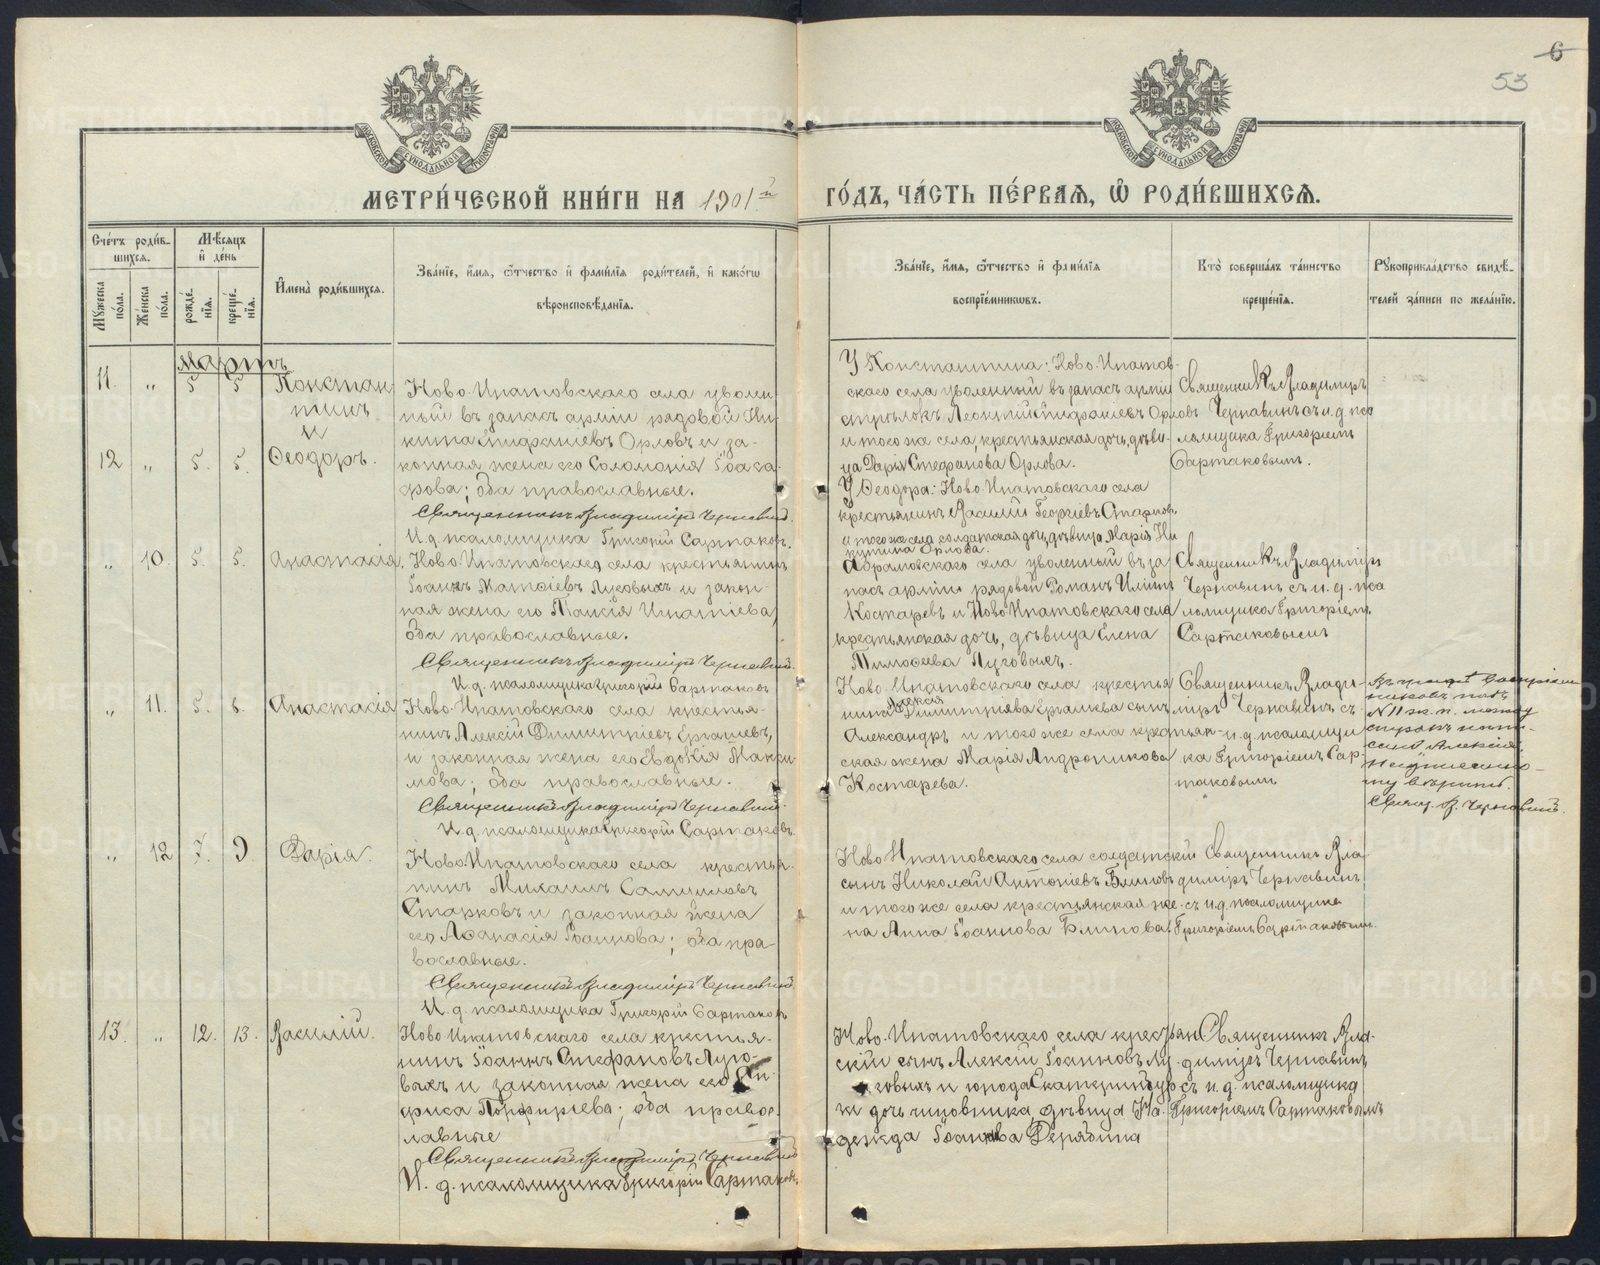 6
53
МОСКОВСКОЙ СѴНОДАЛЬНОЙ ТИПОГРАФІИ
МОСКОВСКОЙ СѴНОДАЛЬНОЙ ТИПОГРАФІИ
МЕТРИ́ЧЕСКОЙ КНИ́ГИ НА 1901й ГО́ДЪ, ЧА́СТЬ ПЕ́РВАѦ, Ѡ҆ РОДИ́ВШИХСѦ.
Сче́тъ роди́в-
шихсѧ.
Мѹжеска по́ла.
Же́нска по́ла.
Мѣ́сѧцъ
и҆ де́нь
рожде́-
нїѧ.
креще́-
нїѧ.
И҆мена̀ роди́вшихсѧ.
Зва́нїе, и҆́мѧ, ѻ҆́тчество и҆ фами́лїѧ роди́телей, и҆ како́гѡ
вѣроисповѣ́данїѧ.
Зва́нїе, и҆́мѧ, ѻ҆́тчество и҆ фами́лїѧ
воспрїе́мникѡвъ.
Кто̀ соверша́лъ та́инство
креще́нїѧ.
Рѹкоприкла́дство свидѣ́-
телей за́писи по жела́нїю.
Мартъ
11. „ 5 5 Констан
тинъ
и
12 „ 5. 5. Ѳеодоръ.
Ново-Ипатовскаго села уволен
ный въ запасъ арміи рядовой Ни-
кита Епифаніевъ Орловъ и за-
конная жена его Соломонія Іоаза-
фова; оба православные.
Священникъ Владиміръ Чернавинъ.
И. д. псаломщика Григорій Сартаковъ.
У Константина: Ново-Ипатов-
скаго села уволенный въ запасъ арміи
стрѣлокъ Леонтій Епифаніевъ Орловъ
и того же села, крестьянская дочь, дѣви-
ца Дарія Стефанова Орлова.
У Ѳеодора: Ново-Ипатовскаго села
крестьянинъ Василій Георгіевъ Старковъ
и того же села солдатская дочь, дѣвица Марія Ни
китина Орлова.
Священникъ Владиміръ
Чернавинъ съ и. д. пса
ломщика Григоріемъ
Сартаковымъ.
„ 10. 5. 5. Анастасія.
Ново-Ипатовскаго села крестьянинъ
Іоаннъ Матѳіевъ Луговыхъ и закон-
ная жена его Таисія Игнатіева,
оба православные.
Священникъ Владиміръ Чернавинъ.
И. д. псаломщика Григорій Сартаковъ
Абрамовскаго села уволенный въ за
пасъ арміи рядовой Романъ Иліинъ
Костаревъ и Ново-Ипатовскаго села
крестьянская дочь, дѣвица Елена
Тимоѳеева Луговыхъ.
Священникъ Владиміръ
Чернавинъ съ и. д. пса
ломщика Григоріемъ
Сартаковымъ
„ 11. 5. 6. Анастасія
Ново-Ипатовскаго села крестья-
нинъ Алексій Димитріевъ Ергашевъ,
и законная жена его Евдокія Макси
мова; оба православные.
Священникъ Владиміръ Чернавинъ.
И. д. псаломщика Григорій Сартаковъ.
Ново-Ипатовскаго села крестья
Алексія
нина Димитріева Ергашева сынъ
Александръ и того же села крестьян-
ская жена Марія Андроникова
Костарева.
Священникъ Влади-
міръ Чернавинъ съ
и. д. псаломщи
ка Григоріемъ Сар-
таковымъ
Въ графѣ воспріем
никовъ подъ
№ 11 ж. п. между
строкъ напи-
сано Алексія
вѣрить.
Свящ. В. Чернавинъ.
„ 12 7. 9. Дарія.
Ново-Ипатовскаго села крестья-
нинъ Михаилъ Самуиловъ
Старковъ и законная жена
его Аѳанасія Іоаннова; оба пра-
вославные.
Священникъ Владиміръ Чернавинъ
И. д. псаломщика Григорій Сартаковъ
Ново-Ипатовскаго села солдатскій
сынъ Николай Антоніевъ Блиновъ
и того же села крестьянская же-
на Анна Іоаннова Блинова.
Священникъ Вла
димиръ Чернавинъ
съ и. д. псаломщика
Григоріемъ Сартаковымъ.
13. „ 12. 13. Василій.
Ново-Ипатовскаго села крестья-
нинъ Іоаннъ Стефановъ Луго-
выхъ и законная жена его Ан-
фиса Порфиріева; оба право-
лавные
Священникъ Владиміръ Чернавинъ
И. д. псаломщика Григорій Сартаковъ
Ново-Ипатовскаго села крестьян
скій сынъ Алексій Іоанновъ Лу-
говыхъ и города Екатеринбур
га дочь чиновника дѣвица На-
дежда Іоаннова Дерябина
Священникъ Вла-
димиръ Чернавинъ
съ и. д. псаломщика
Григоріемъ Сартаковымъ
METRIKI.GASO-URAL.RU